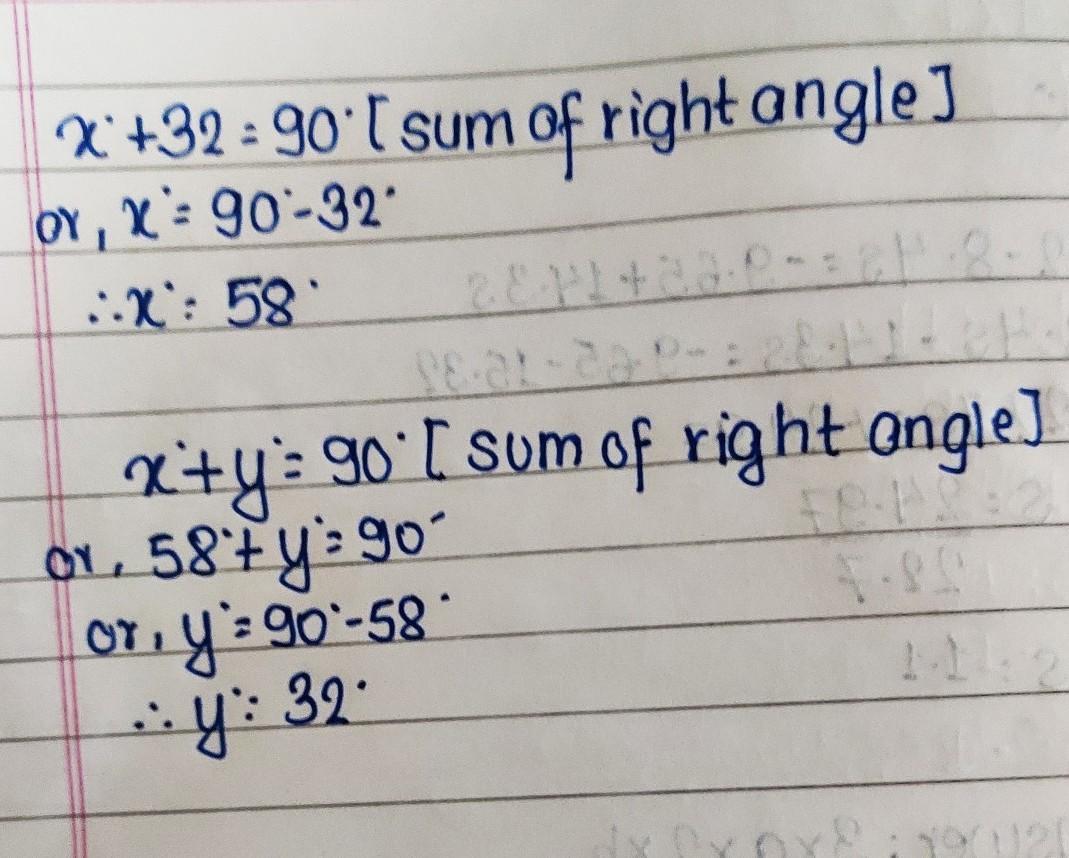 x°+32=90° [sum of right angle]
or, x°=90°-32°
∴x°=58°
x°+y°=90° [sum of right angle]
or, 58°+y°=90°
or, y°=90°-58°
∴y°=32°